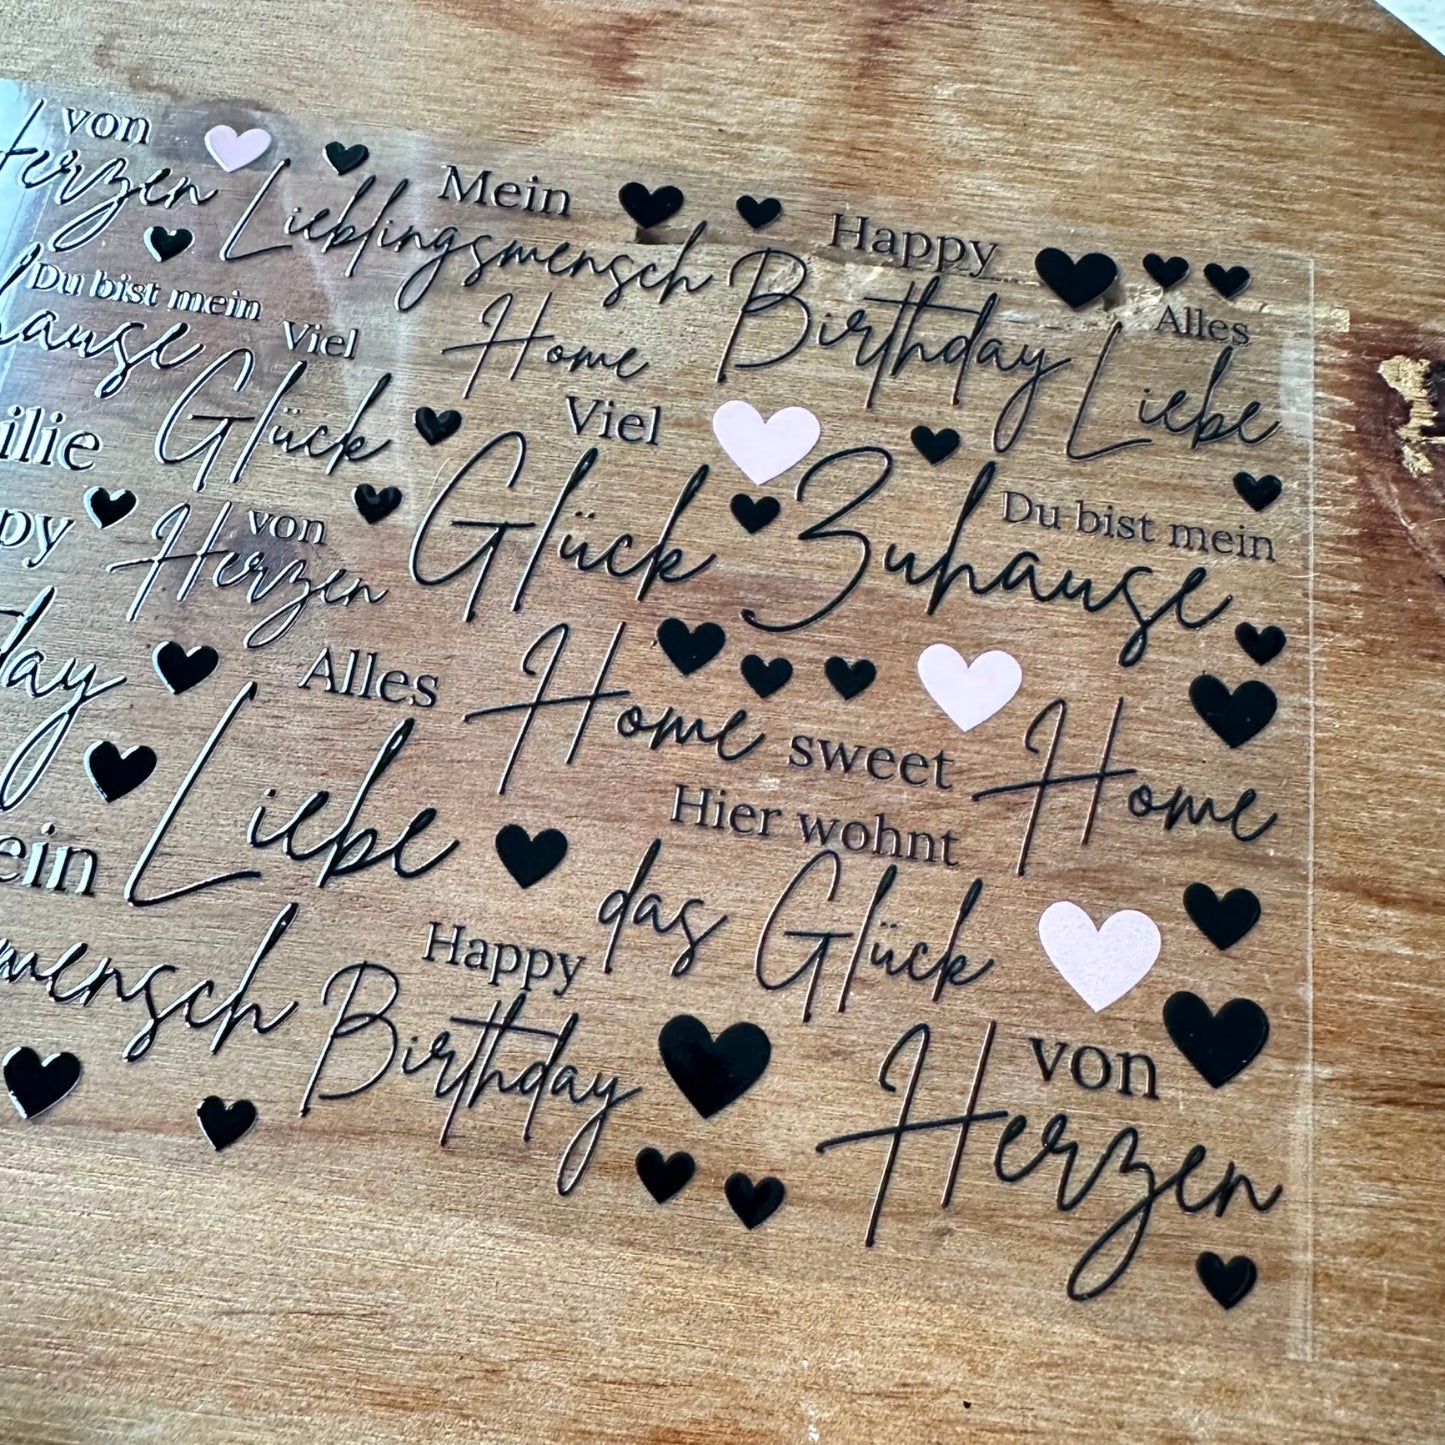 von
Herzen
Mein
Lieblingsmensch
Happy
Birthday
Alles
Liebe
Du bist mein
Zuhause
Viel
Glück
Home
Viel
Glück
Du bist mein
Zuhause
ilie
py
von
Herzen
day
Alles
Liebe
Home sweet Home
Hier wohnt
das Glück
ein
mensch
Happy
Birthday
von
Herzen